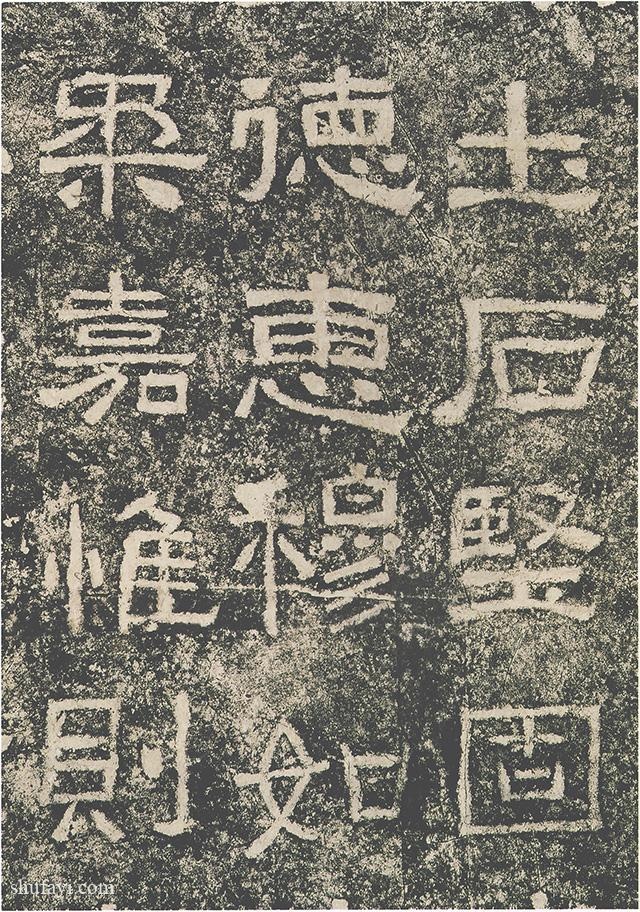 土石堅固
德惠穆如
柔嘉惟則
shufayi.com